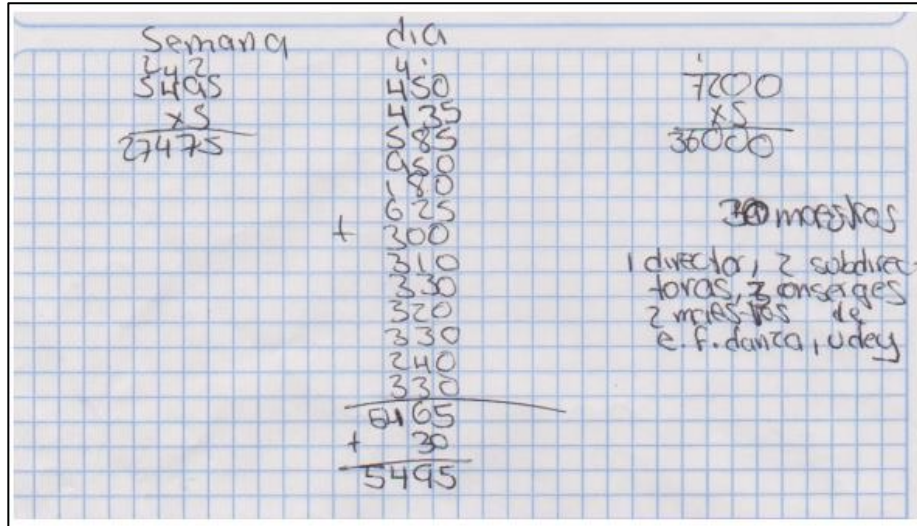 Semana
2 4 2
5495
x5
27475
dia
4 1
450
435
585
950
180
625
+ 300
310
330
320
330
240
330
5465
+ 30
5495
1
7200
x5
36000
30 maestros
1 director, 2 subdirec-
toras, 3 conserges
2 maestros de
e.f. danza, udey